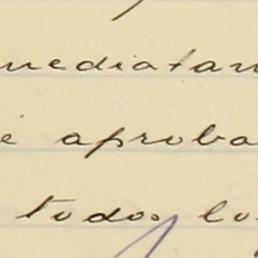 mediatam
é aproba
todos lo